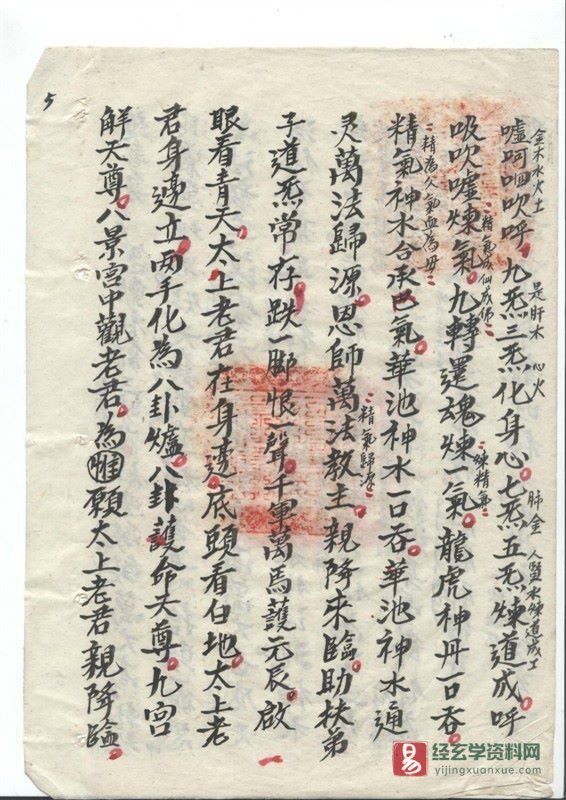 5
金木水火土
是肝木 心火
肺金
噓呵呬吹呼。九炁三炁化身心。七炁五炁煉道成。呼
精氣成仙成佛
練精氣
吸吹噓煉氣。九轉還魂煉一氣。龍虎神丹一口吞。
精為父氣血為母
精氣神水合承巴氣。華池神水一口吞。華池神水通
精氣歸源
灵萬法歸源。恩師萬法教主親降來臨。助扶弟
子道炁常存。跌一脚恨一聲。千軍萬馬護元辰。啟
眼看青天。太上老君在身邊。底頭看白地。太上老
君身邊立。两手化為八卦爐。八卦護命天尊。九宮
解天尊。八景宮中觀老君。為惟願太上老君親降臨。
经玄学资料网
yijingxuanxue.com